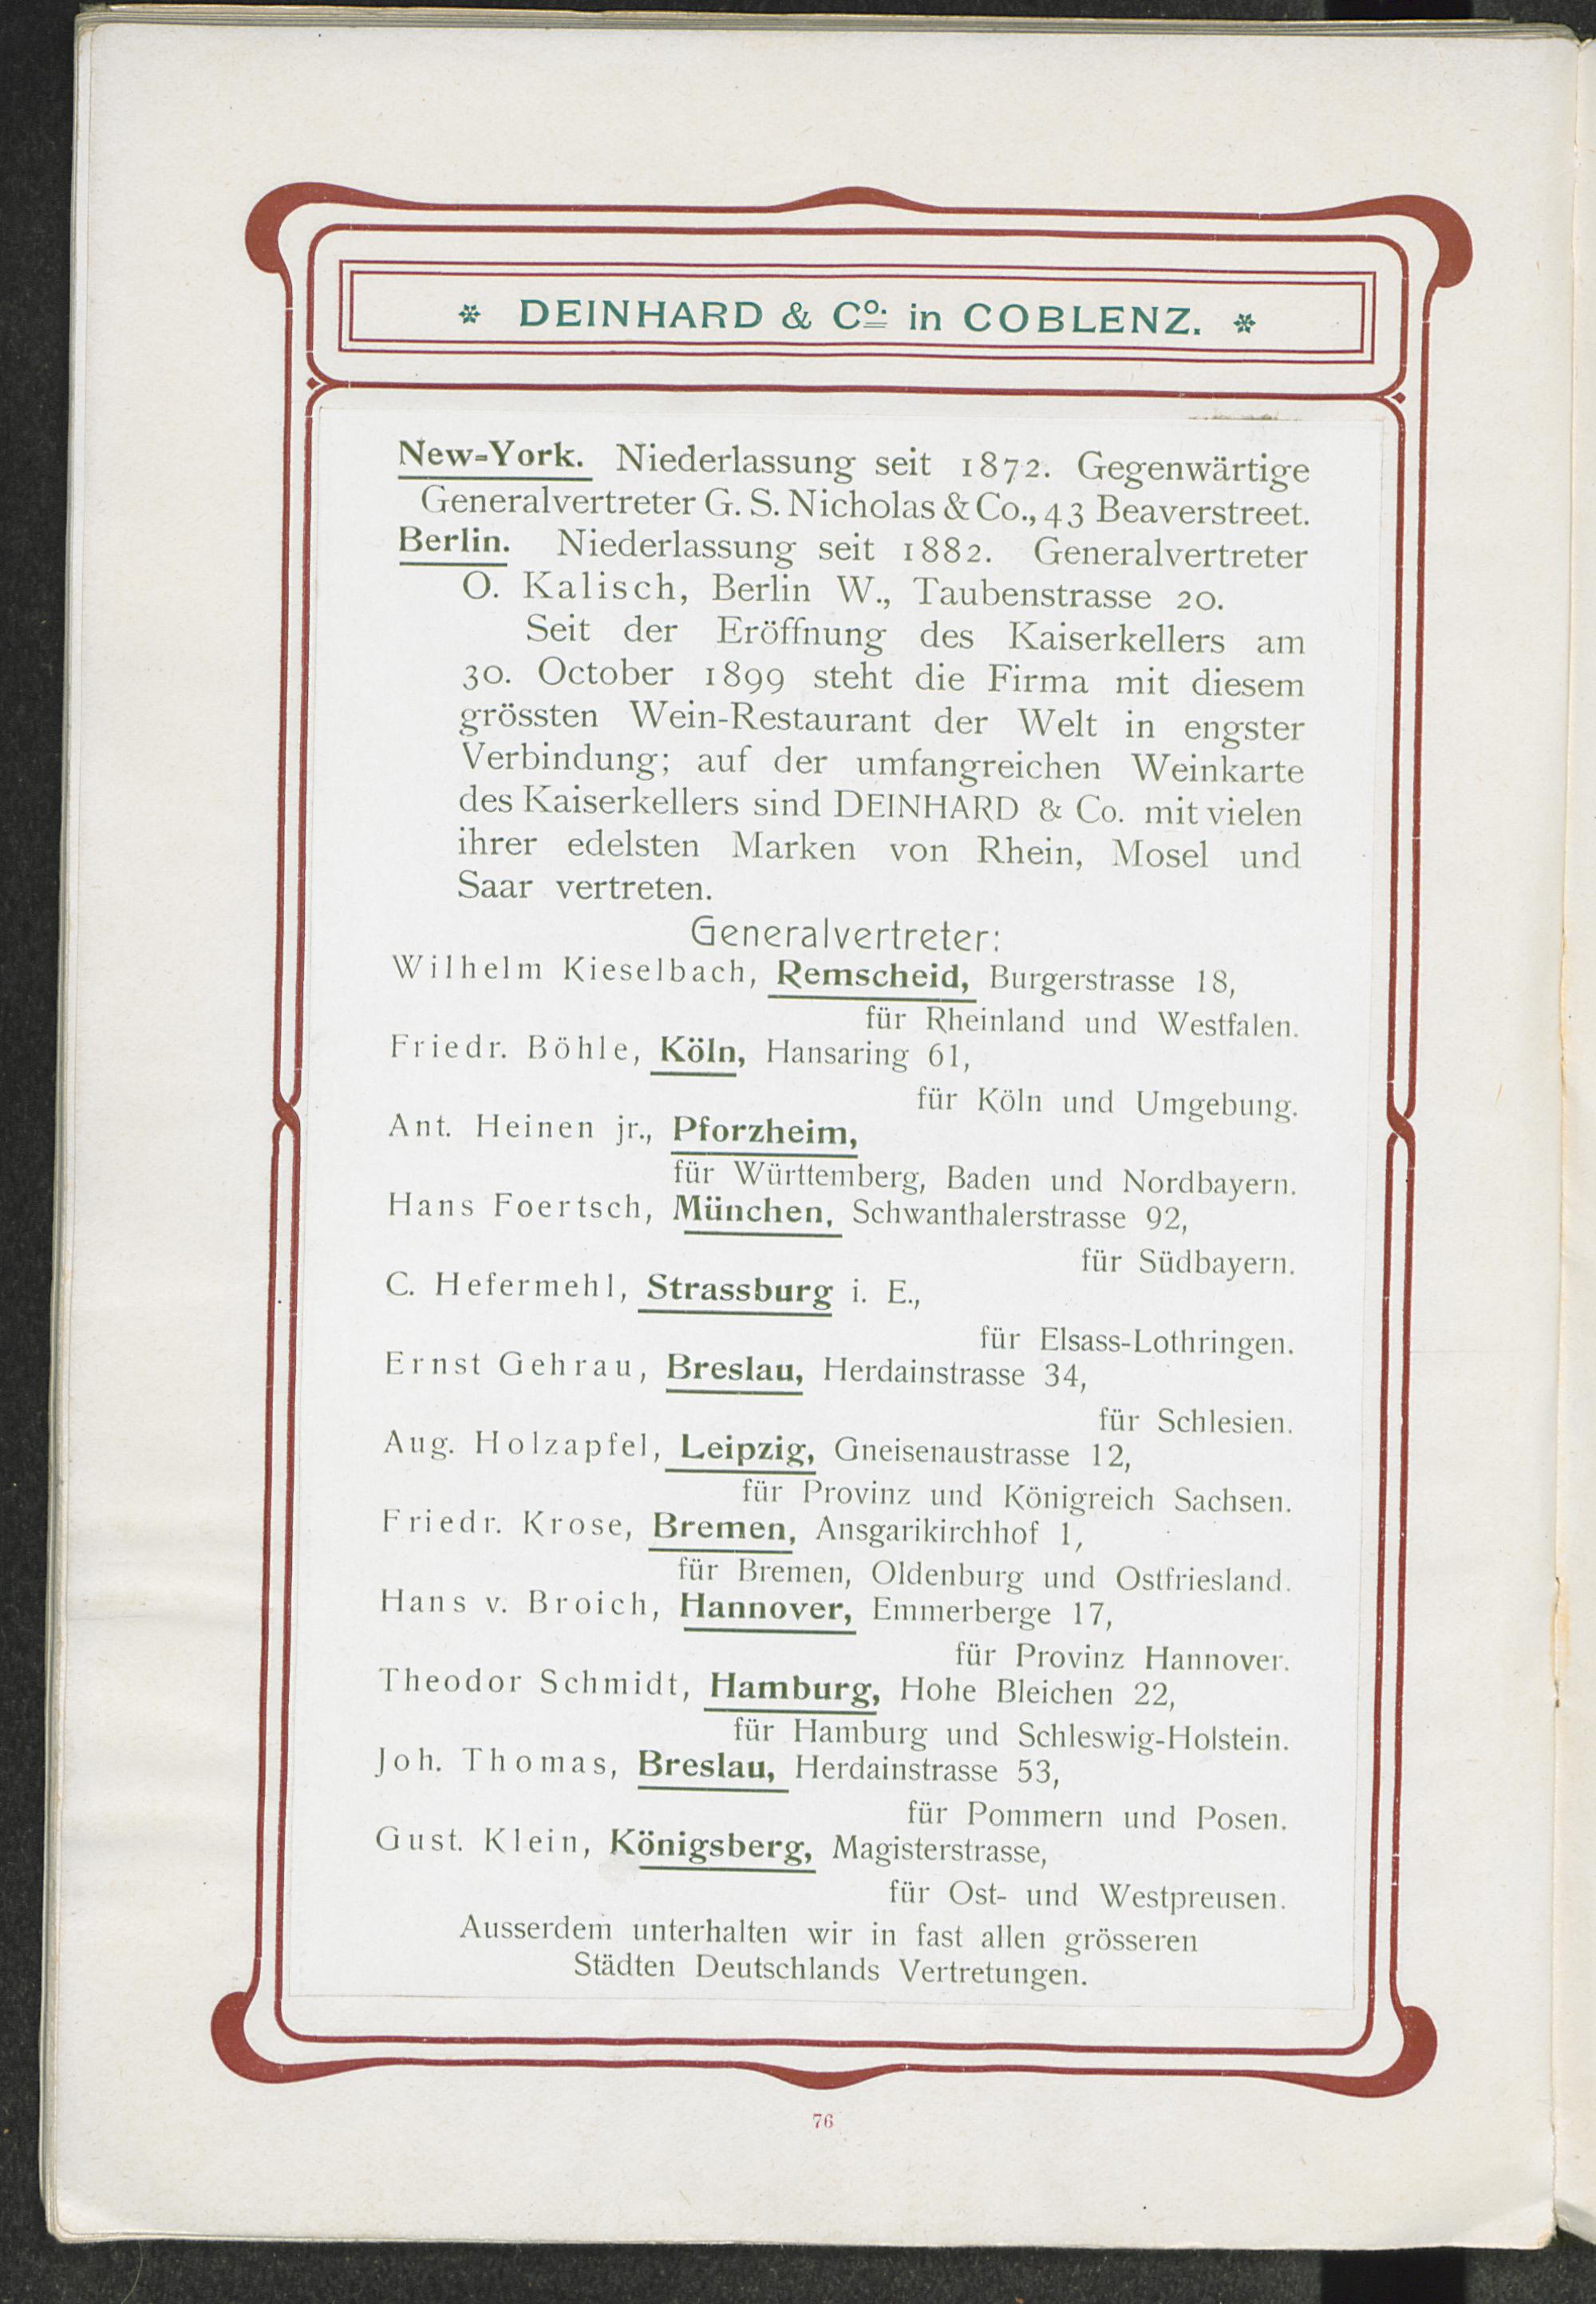 * DEINHARD & Co. in COBLENZ. *
New-York. Niederlassung seit 1872. Gegenwärtige
Generalvertreter G. S. Nicholas & Co., 43 Beaverstreet.
Berlin. Niederlassung seit 1882. Generalvertreter
O. Kalisch, Berlin W., Taubenstrasse 20.
Seit der Eröffnung des Kaiserkellers am
30. October 1899 steht die Firma mit diesem
grössten Wein-Restaurant der Welt in engster
Verbindung; auf der umfangreichen Weinkarte
des Kaiserkellers sind DEINHARD & Co. mit vielen
ihrer edelsten Marken von Rhein, Mosel und
Saar vertreten.
Generalvertreter:
Wilhelm Kieselbach, Remscheid, Burgerstrasse 18,
für Rheinland und Westfalen.
Friedr. Böhle, Köln, Hansaring 61,
für Köln und Umgebung.
Ant. Heinen jr., Pforzheim,
für Württemberg, Baden und Nordbayern.
Hans Foertsch, München, Schwanthalerstrasse 92,
für Südbayern.
C. Hefermehl, Strassburg i. E.,
für Elsass-Lothringen.
Ernst Gehrau, Breslau, Herdainstrasse 34,
für Schlesien.
Aug. Holzapfel, Leipzig, Gneisenaustrasse 12,
für Provinz und Königreich Sachsen.
Friedr. Krose, Bremen, Ansgarikirchhof 1,
für Bremen, Oldenburg und Ostfriesland.
Hans v. Broich, Hannover, Emmerberge 17,
für Provinz Hannover.
Theodor Schmidt, Hamburg, Hohe Bleichen 22,
für Hamburg und Schleswig-Holstein.
Joh. Thomas, Breslau, Herdainstrasse 53,
für Pommern und Posen.
Gust. Klein, Königsberg, Magisterstrasse,
für Ost- und Westpreusen.
Ausserdem unterhalten wir in fast allen grösseren
Städten Deutschlands Vertretungen.
76